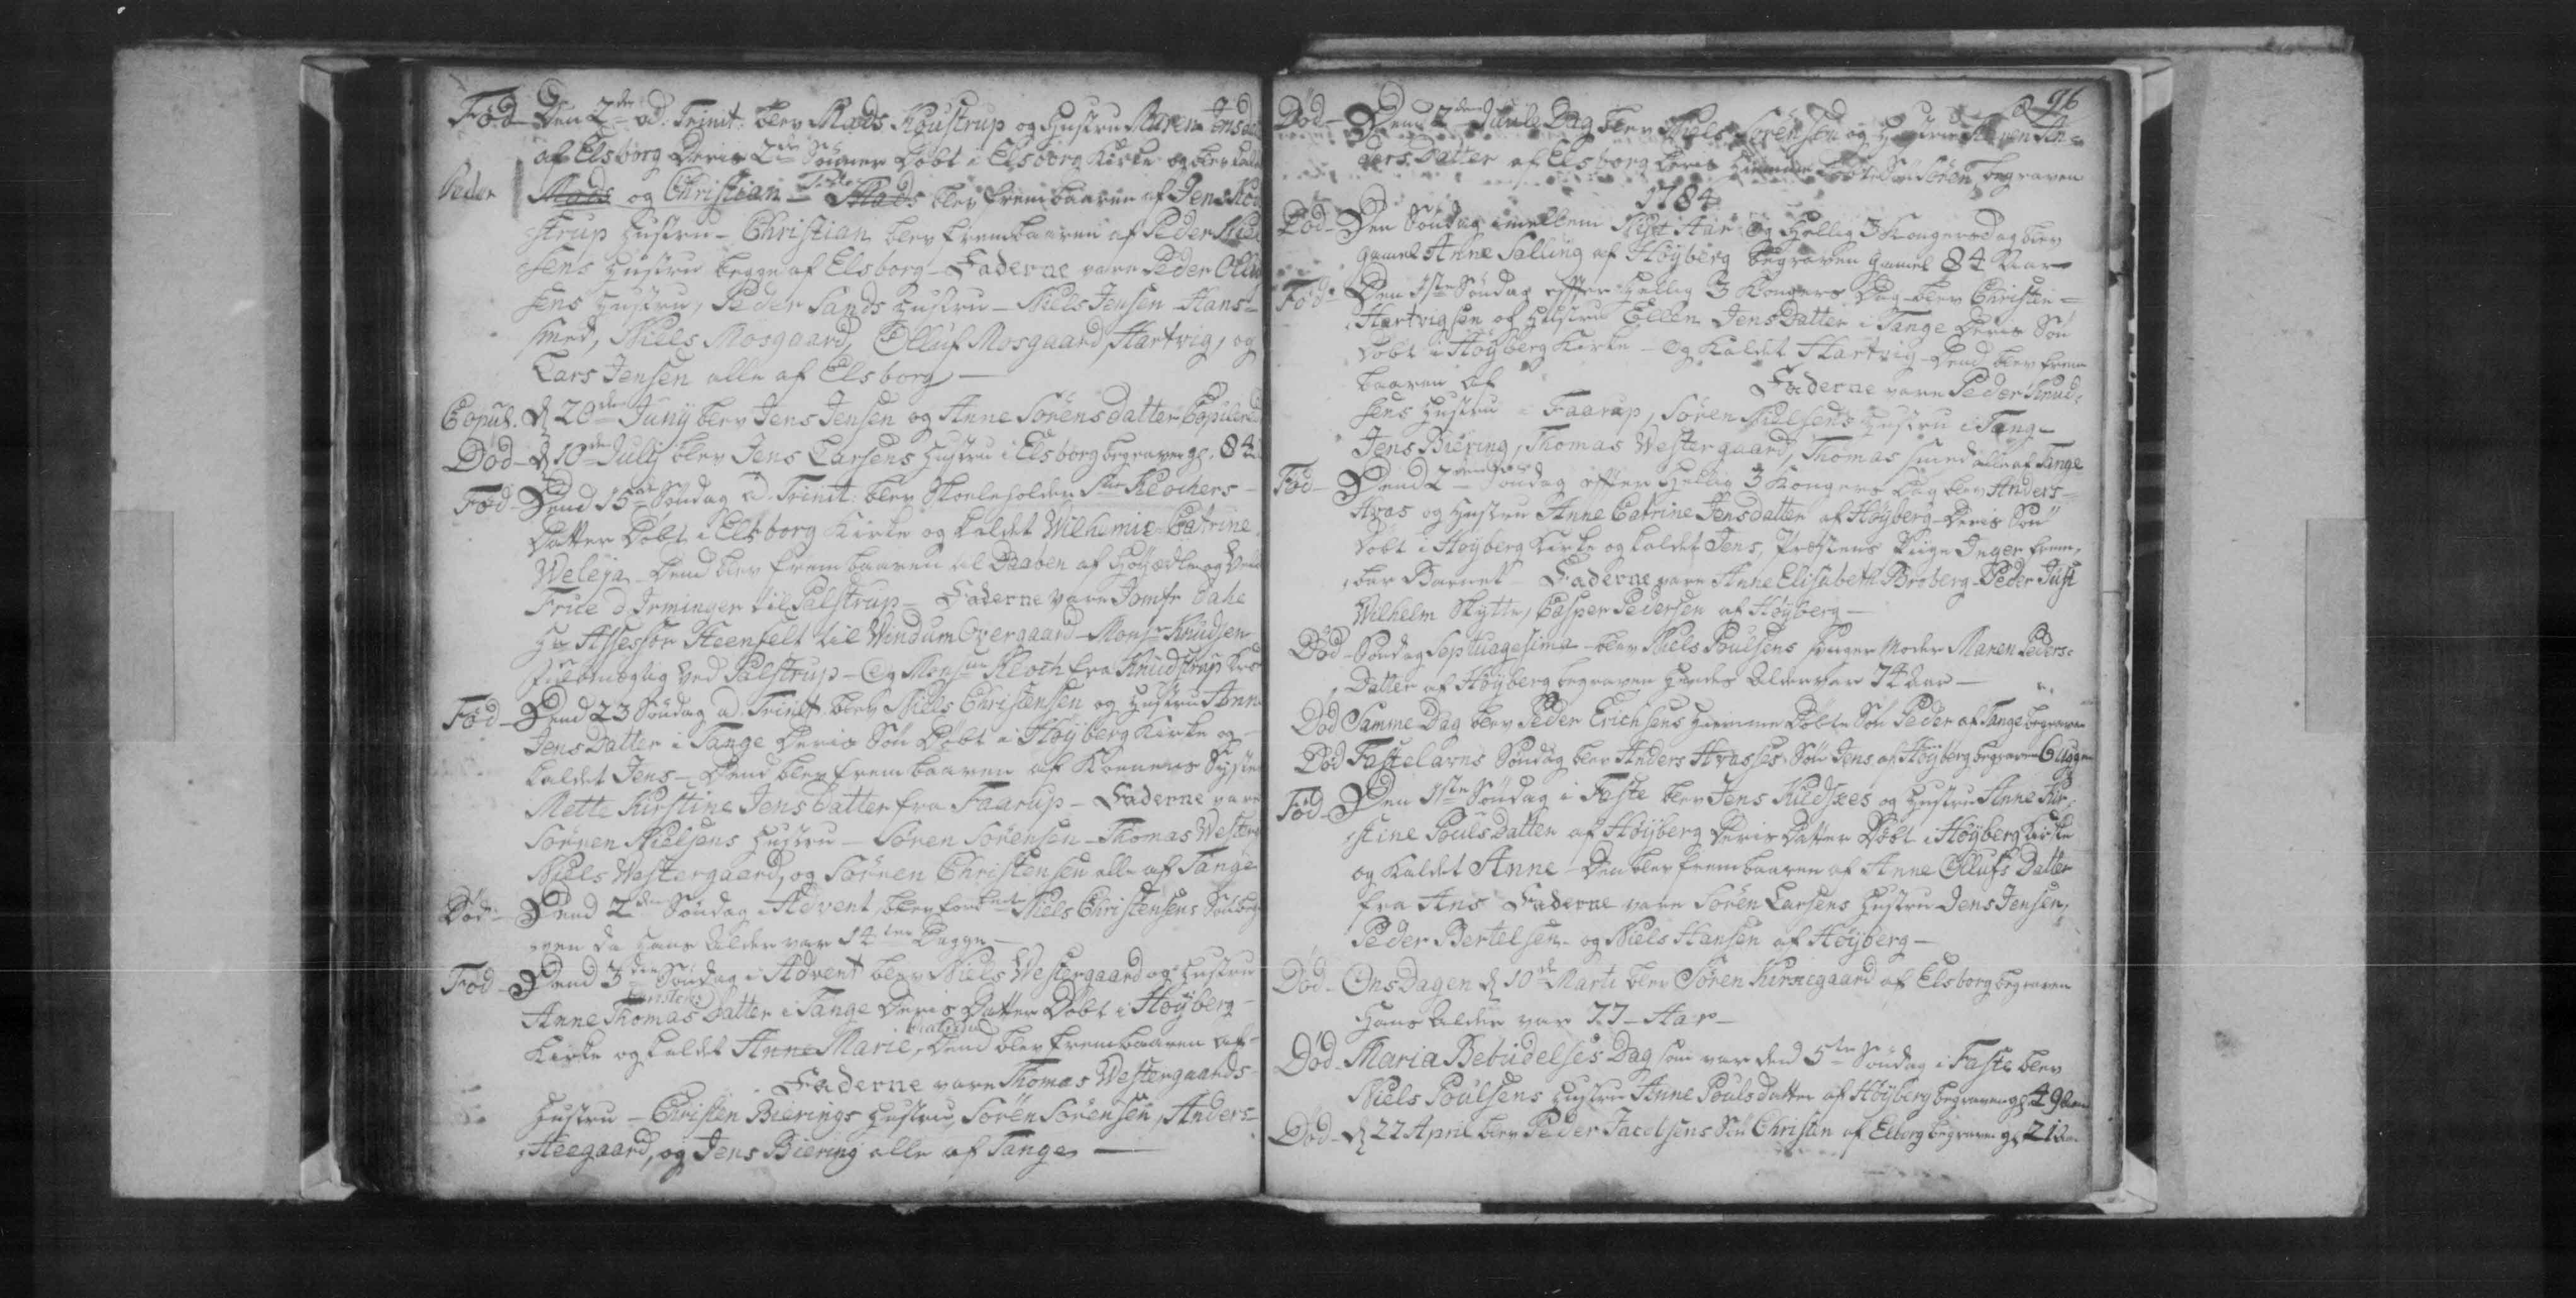 Fød Den 2den ad. Trinit: blev Mads Houstrup og Hustru Maren Jens
af Elsborg deris 2de Sønner døbt i Elsborg Kirke og blev
Peder Mads og Christian Peder Mads blev frembaaren af Jens
strup Hustru - Christian blev frembaaren af Peder
sens Hustru begge af Elsborg - Faderne vare Peder
sens Hustru, Peder Sands Hustru - Niels Jensen Hans
smed, Niels Mosgaard, Olluf Mosgaard, Hartvig, og
Lars Jensen alle af Elsborg -
Copul. d 20de Juny blev Jens Jensen og Anne Sørensdatter
Død - d 10de July blev Jens Larsens Hustru i Elsborg begraven gl. 84
Fød - Dend 15de Søndag ad. Trinit: blev Skoleholder Klochers
Datter døbt i Elsborg Kirke og kaldet Wilhemie Catrine
Weleja - Dend blev frembaaren til Daaben af
Frue d Irminger til Palstrup - Faderne vare Jomfr
Hr Assessor Steenfelt til Windum Overgaard - Monsr Knudsen
ved Palstrup - Og Monsr Kloch fra Knudstrup
Fød - Dend 23 Søndag ad. Trinit: blev Niels Christensen og Hustru Anne
Jens Datter i Tange deris Søn døbt i Høyberg Kirke og
kaldet Jens - Dend blev frembaaren af Konens Syster
Mette Kirstine Jens Datter fra Faarup - Faderne vare
Sørren Nielsens Hustru - Søren Sørensen - Thomas Wester
Niels Westergaard, og Sørren Christensen alle af Tange
Død - Dend 2den Søndag i Advent blev Niels Christensens Søn
ven da hans Alder var 14 Dagge -
Fød - Dend 3die Søndag i Advent blev Niels Westergaard og Hustru
Anne Thomas Datter i Tange deris Datter døbt i Høyberg
Kirke og kaldet Anne Marie, Dend blev frembaaren af
Faderne vare Thomas Westergaards
Hustru - Christen Bierings Hustru, Søren Sørensen, Anders
Heegaard, og Jens Biering alle af Tange -
96
Død - Dend 2den Juule Dag blev Niels Sørensen og Hustru Maren An=
ders Datter af Elsborg deris hiemme døbte Søn Søren begraven
1784
Død - Den Søndag imellem Nyt Aar og Hellig 3 Kongersdag blev
gamel Anne Salling af Høyberg begraven gamel 84 Aar
Fød - Den 1ste Søndag efter Hellig 3 Kongers Dag blev Christen
Hartvigsen og Hustru Ellen Jens Datter i Tange deris Søn
døbt i Høyberg Kirke - Og kaldet Hartvig - Dend blev frem
baaren af Faderne vare Peder Knud
sens Hustru i Faarup, Søren Nielsens Hustru i Tang-
Jens Biering, Thomas Westergaard, Thomas smed alle af Tange
Fød - Dend 2den Søndag efter Hellig 3 Kongers Dag blev Anders
Hvas og Hustru Anne Catrine Jensdatter af Høyberg deris Søn
døbt i Høyberg Kirke og kaldet Jens, Præstens Piige Inger frem
bar Barnet - Faderne vare Anne Elisabeth Broberg - Peder Just
Wilhelm Skytte, Casper Pedersen af Høyberg -
Død - Søndag Septuagesima - blev Niels Poulsens Moder Maren Peders=
Datter af Høyberg begraven hendes Alder var 74 Aar -
Død Samme Dag blev Peder Erichsens hiemme døbte Søn Peder af Tange begraven
Død Fastelavns Søndag blev Anders Hvasses Søn Jens af Høyberg begraven
Fød - Den 1ste Søndag i Faste blev Jens Kieldsees og Hustru Anne Kir
stine Poulsdatter af Høyberg deris Datter døbt i Høyberg Kirke
og kaldet Anne - Den blev frembaaren af Anne Ollufs Datter
fra Ans Faderne vare Søren Larsens Hustru Jens Jensen,
Peder Bertelsen - og Niels Hansen af Høyberg -
Død - Ons Dagen d 10de Marti blev Søren Kirkegaard af Elsborg begraven
hans Alder var 77 - Aar -
Død - Maria Bebudelses Dag som var den 5te Søndag i Faste blev
Niels Poulsens Hustru Anne Pouls datter af Høyberg begraven gl 49
Død - d 22 April blev Peder Jacobsens Søn Christen af Elsborg begraven gl 21